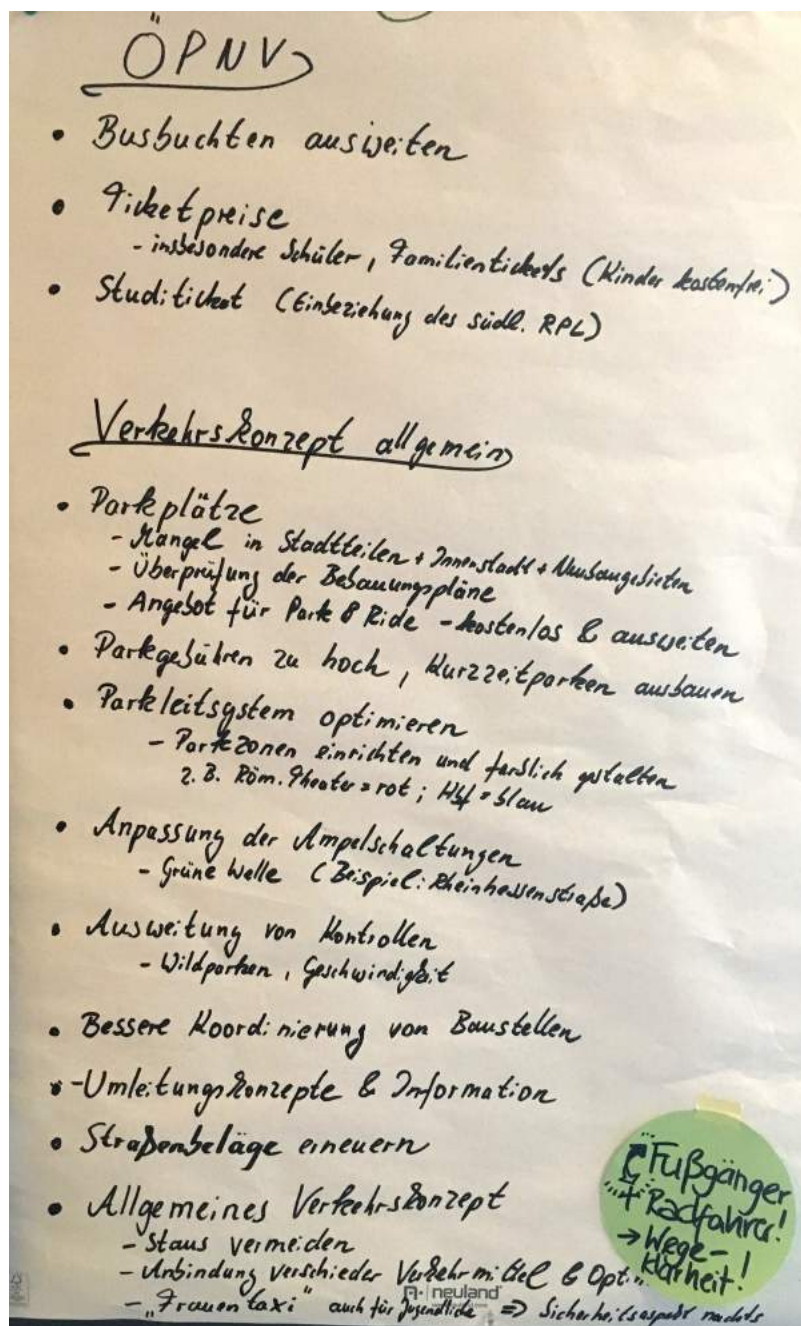 ÖPNV
• Busbuchten ausweiten
• Ticketpreise
- insbesondere Schüler, Familientickets (Kinder kostenfrei)
• Studiticket (Einbeziehung des südl. RPL)
Verkehrskonzept allgemein
• Parkplätze
- Mangel in Stadtteilen + Innenstadt + Neubaugebieten
- Überprüfung der Bebauungspläne
- Angebot für Park & Ride - kostenlos & ausweiten
• Parkgebühren zu hoch, Kurzzeitparken ausbauen
• Parkleitsystem optimieren
- Parkzonen einrichten und farblich gestalten
z. B. Röm. Theater = rot ; Hbf = blau
• Anpassung der Ampelschaltungen
- Grüne Welle (Beispiel: Rheinhessenstraße)
• Ausweitung von Kontrollen
- Wildparken, Geschwindigkeit
• Bessere Koordinierung von Baustellen
• - Umleitungskonzepte & Information
• Straßenbeläge erneuern
• Allgemeines Verkehrskonzept
- Staus vermeiden
- Anbindung verschieder Verkehrmittel & Opti.
- „Frauentaxi" auch für Jugendliche => Sicherheitsaspekt nachts
Fußgänger
+ Radfahrer!
→ Wege-
klarheit!
neuland